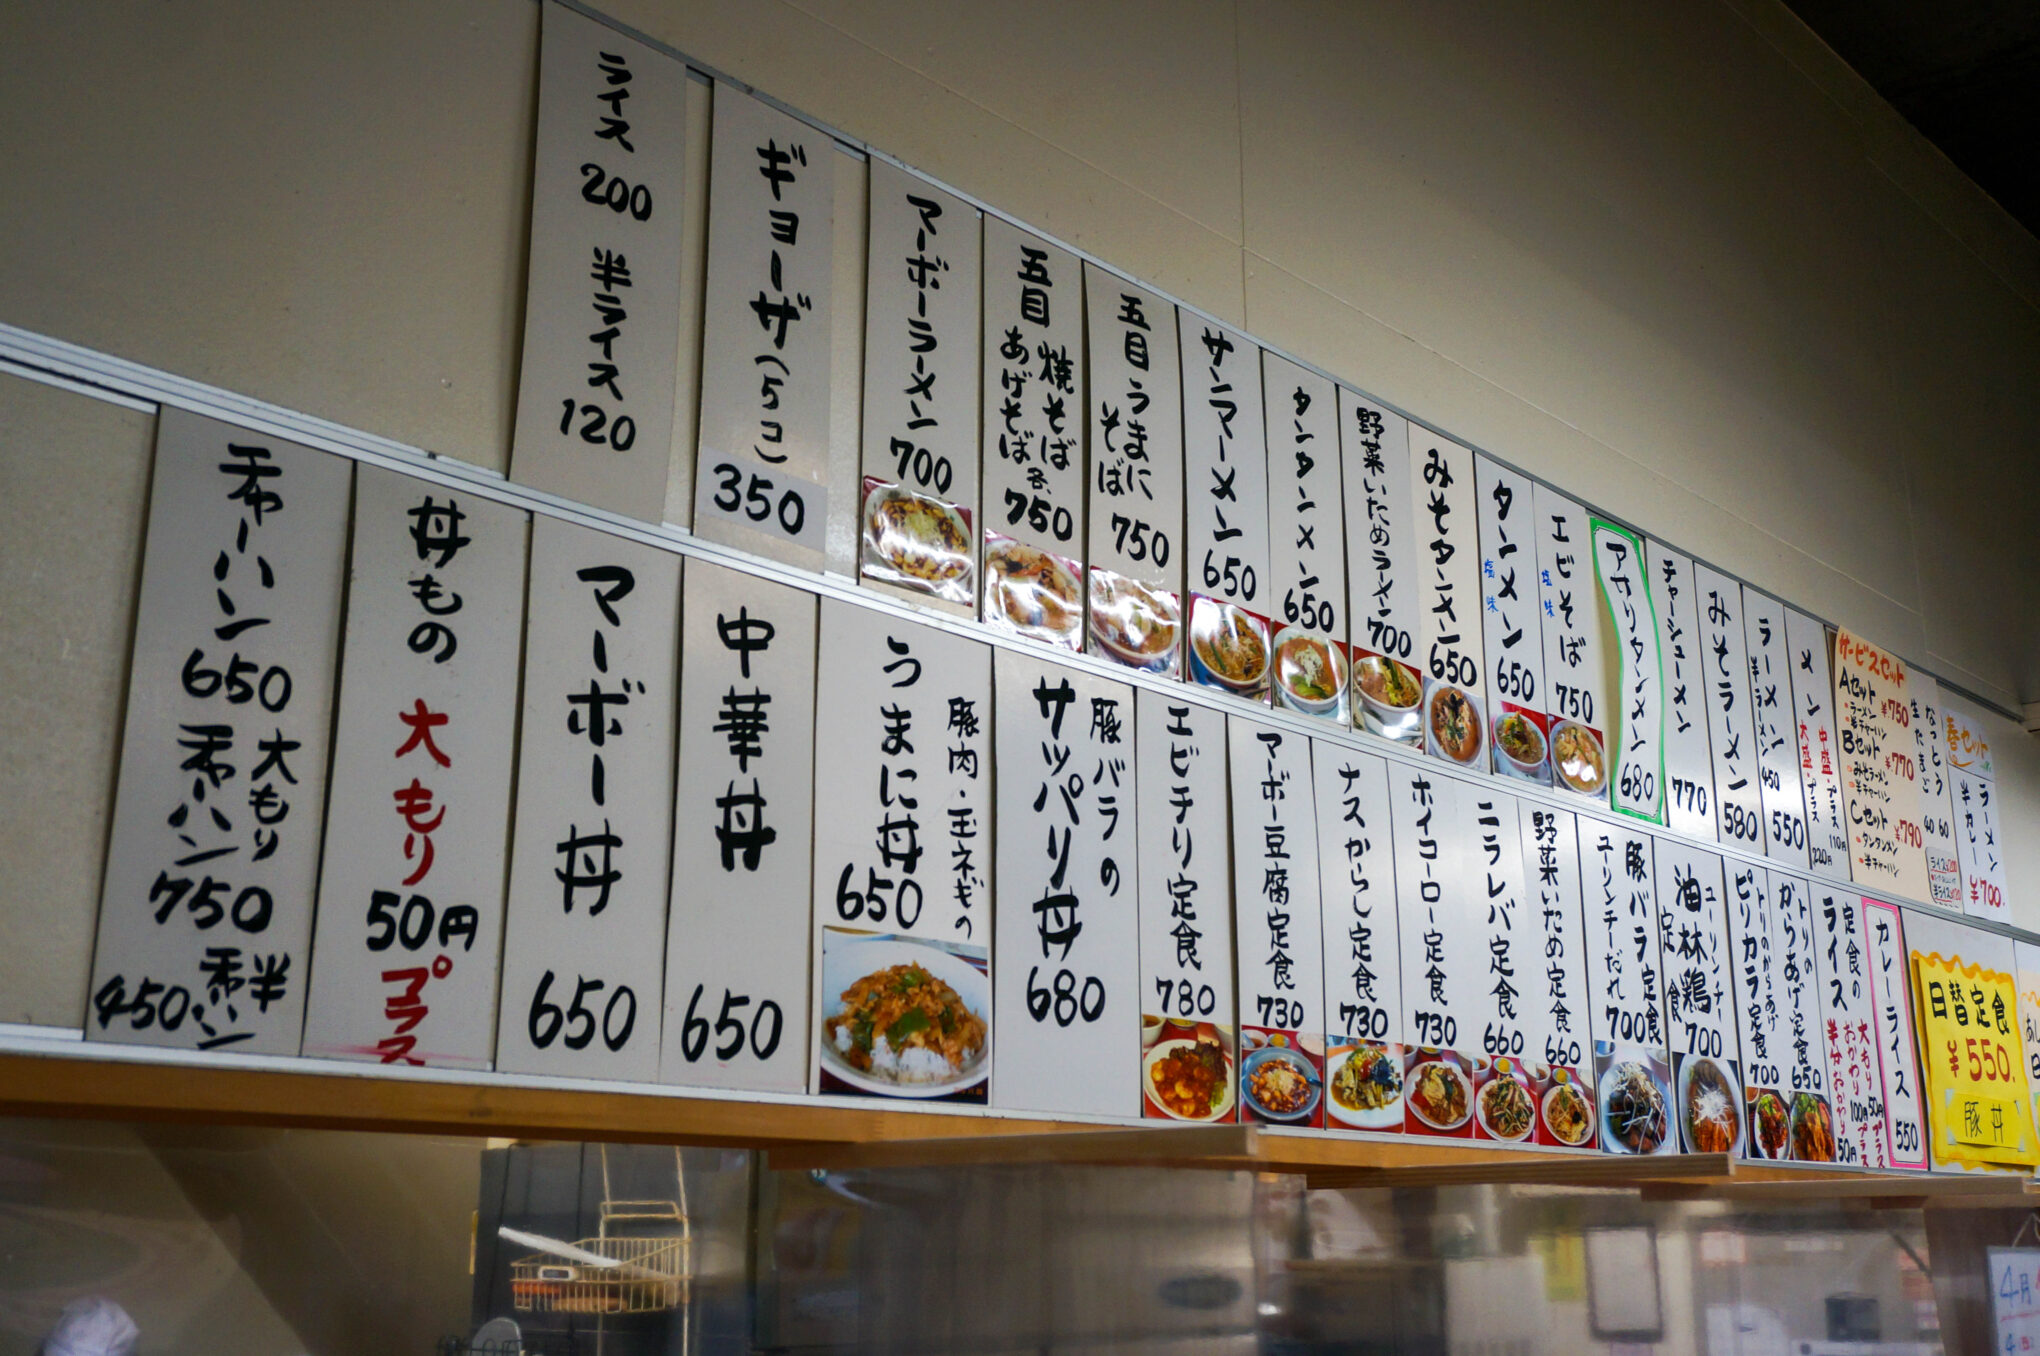 春セット
ラーメン
半カレー
¥700.
なっとう 60
生たまご 40
サービスセット
Aセット ¥750
ラーメン
半チャーハン
Bセット ¥770
みそラーメン
半チャーハン
Cセット ¥790
タンタンメン
半チャーハン
メン
中盛・プラス 110円
大盛・プラス 220円
ラーメン 550
半ラーメン 450
みそラーメン 580
チャーシューメン 770
アサリタンメン 680
エビそば 750
塩味
タンメン 650
塩味
みそタンメン 650
野菜いためラーメン 700
タンタンメン 650
サンマーメン 650
五目うまに
そば
750
五目 焼そば
あげそば 各、
750
マーボーラーメン
700
ギョーザ(5コ)
350
ライス
200
半ライス
120
日替定食
¥550.
豚丼
カレーライス 550
定食の
ライス
大もり 50円プラス
おかわり 100円プラス
半分おかわり 50円
トリの
からあげ定食 650
トリのからあげ
ピリカラ定食 700
ユーリンチー
油林鶏
定食
700
豚バラ定食
ユーリンチーだれ
700
野菜いため定食 660
ニラレバ定食 660
ホイコーロー定食 730
ナスからし定食 730
マーボー豆腐定食 730
エビチリ定食 780
豚バラの
サッパリ丼
680
豚肉・玉ネギの
うまに丼
650
中華丼
650
マーボー丼
650
丼もの
大もり
50円
プラス
チャーハン
650
大もり
チャーハン
750
半
チャーハン
450
4月